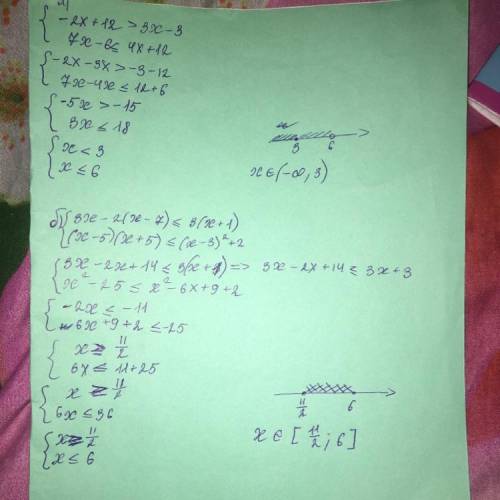 а)
{ -2x+12 > 3x-3
7x-6 ≤ 4x+12
{ -2x-3x > -3-12
7x-4x ≤ 12+6
{ -5x > -15
3x ≤ 18
{ x < 3
x ≤ 6
3 6
x∈(-∞; 3)
б) { 3x-2(x-7) ≤ 3(x+1)
(x-5)(x+5) ≤ (x-3)²+2
{ 3x-2x+14 ≤ 3(x+1) => 3x-2x+14 ≤ 3x+3
x²-25 ≤ x²-6x+9+2
{ -2x ≤ -11
6x+9+2 ≤ -25
{ x ≥ 11/2
6x ≤ 11+25
{ x ≥ 11/2
6x ≤ 36
{ x ≥ 11/2
x ≤ 6
11/2 6
x∈[11/2; 6]